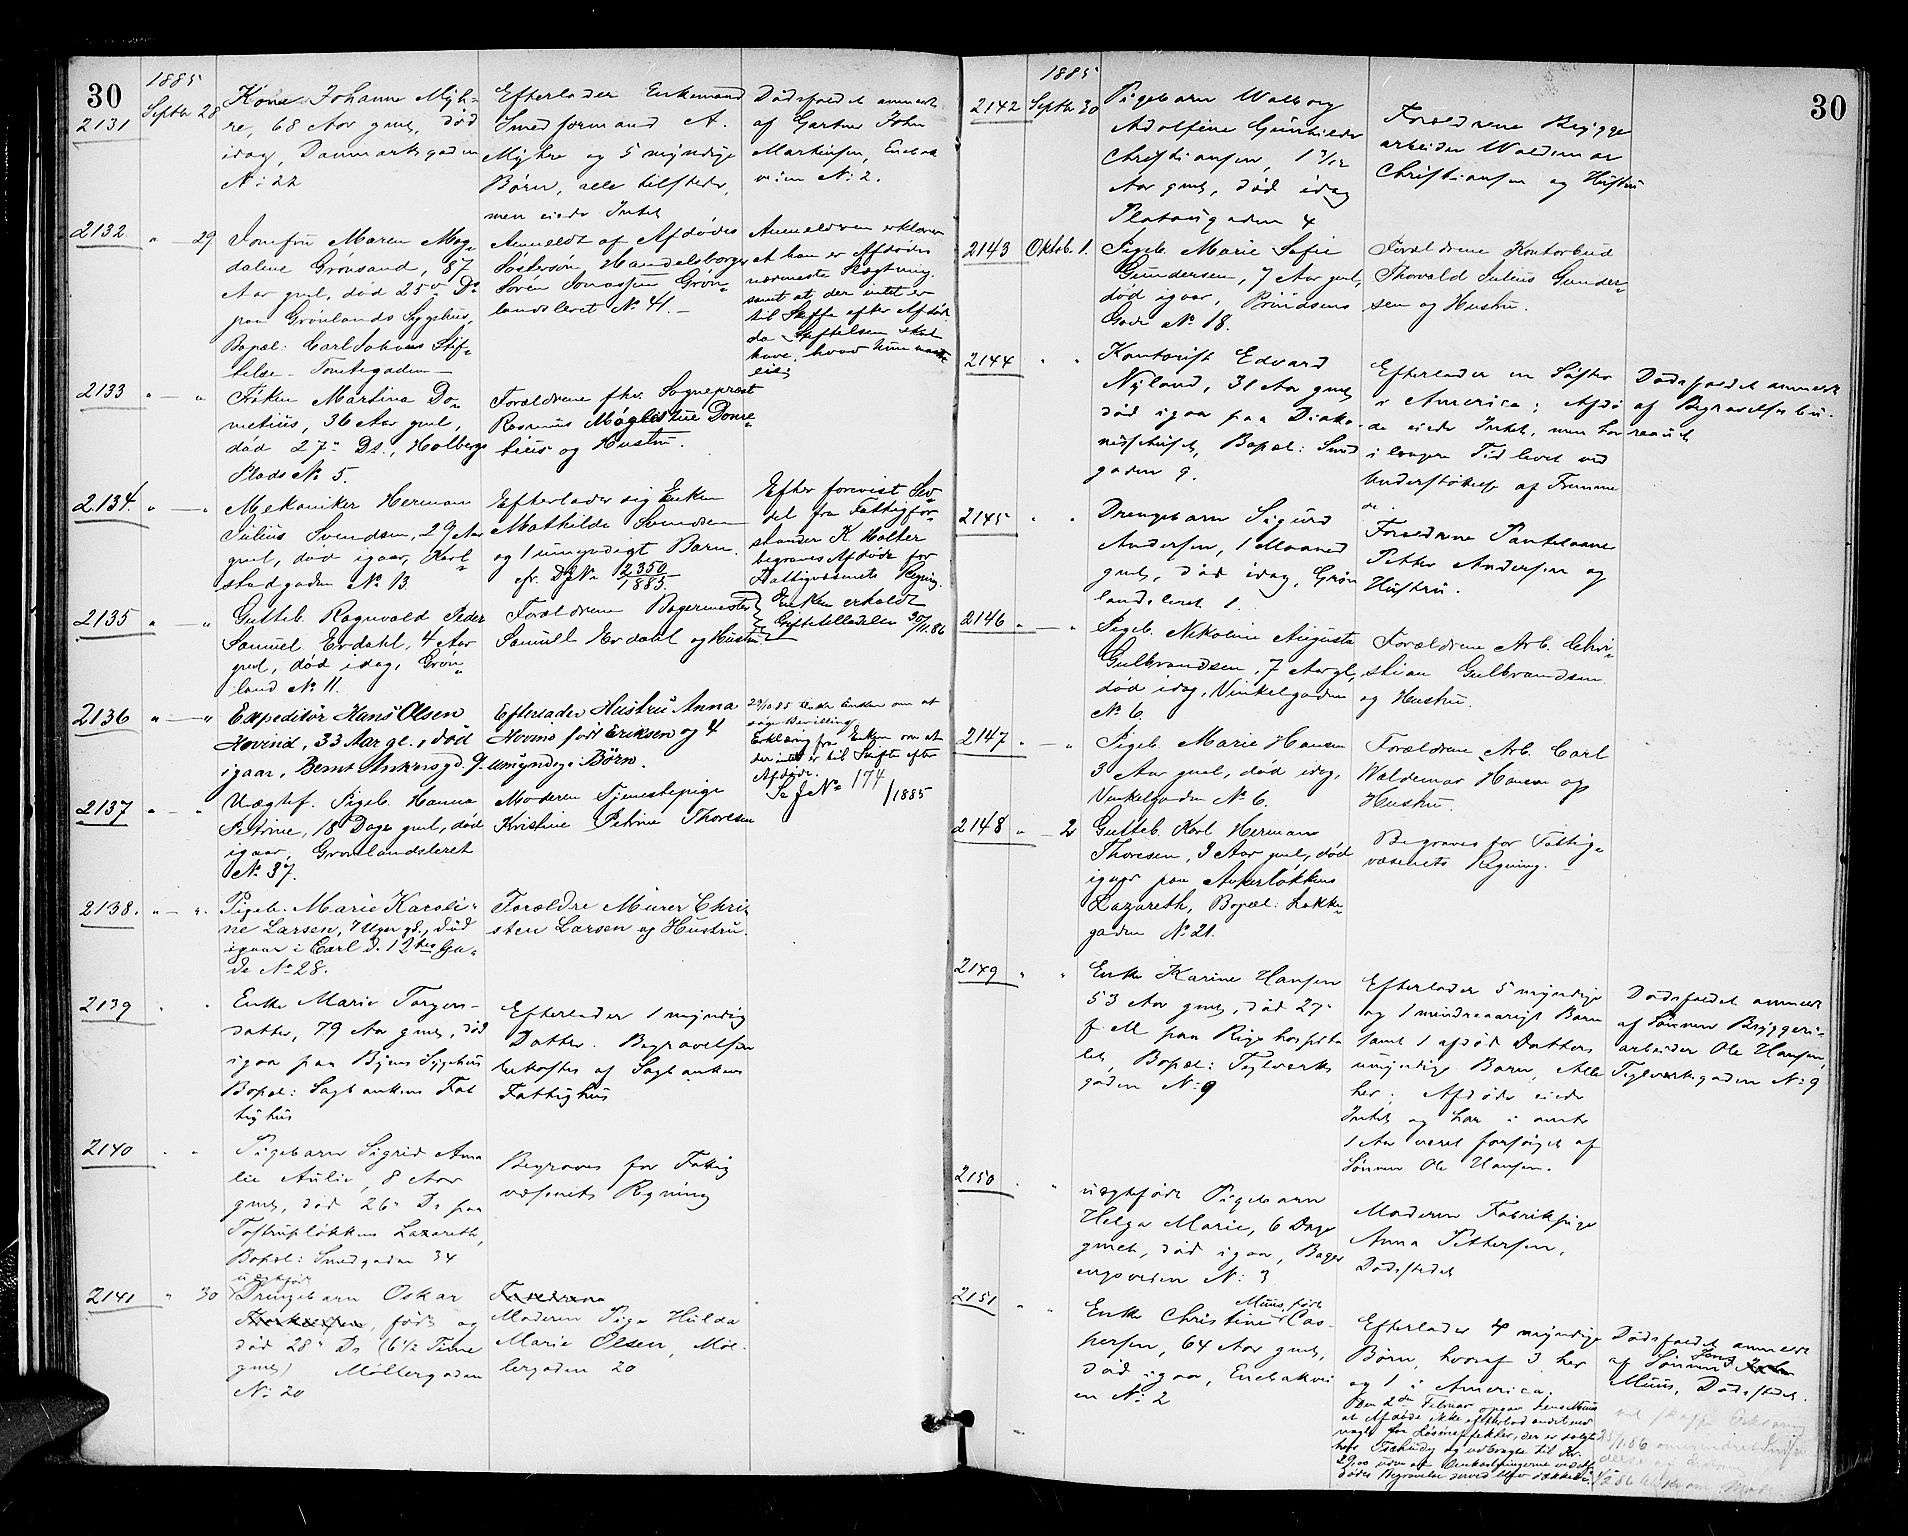 30
1885
2131
Septbr 28
Kone Johanne Myh-
re, 68 Aar gml, død
idag, Danmarksgaden
No 22
Efterlader Enkemand
Smedformand A.
Myhre og 5 myndige
Børn, alle tilstede,
men eiede Intet
Dødsfaldet anmeldt
af Gartner John
Martinsen, Enebak
veien No 2.
2132
" — 29
Jomfru Maren Mag-
dalene Grönsand, 87
Aar gml, død 25de Ds
paa Grønlands Sygehus,
Bopæl: Carl Johans Stif-
telse - Tomtegaden —
Anmeldt af Afdødes
Søstersøn, Handelsborger
Søren Jonassen Grøn-
landsleret No 41. —
Anmelderen erklærer
at han er Afdødes
nærmeste Slægtning,
samt at der intet er
til Skifte efter Afdøde
da Stiftelsen skal
have, hvad hun maatte
eie.
2133
" — "
Frøken Martina Do-
metius, 36 Aar gml,
død 27de Ds., Holbergs
Plads No 5.
Forældrene fhv. Sogneprest
Rasmus Møglestue Dome-
tius og Hustru.
2134.
" — "
Mekaniker Herman
Julius Svendsen, 29 Aar
gml, død igaar, Karl-
stadgaden No 13.
Efterlader sig Enken
Mathilde Svendsen
og 1 umyndigt Barn.
cfr. DJNo 2350/1885.
Efter forevist Sed-
del fra Fattigfor-
stander K. Holter
begraves Afdøde for
Fattigvæsenets Regning.
Enken erholdt
Giftetilladelse 30/11.86
2135
" — "
Gutteb. Ragnvald Peder
Samuel Erdahl, 4 Aar
gml, død idag, Grøn-
land No 11.
Forældrene Bagermester
Samuel Erdahl og Hustru
2136
" — "
Expeditör Hans Olsen
Hovind, 33 Aar gl., död
igaar, Bernt Ankersgd. 9.
Efterlader Hustru Anna
Hovind født Eriksen og 4
umyndige Börn.
Enken om at
søge Bevilling
Erklæring fra Enken om at
der intet er til Skifte efter
Afdøde.
Se J No 174/1885
2137
" — "
Uægtef. Pigeb. Hanna
Petrine, 18 Dage gml, død
igaar, Grønlandsleret
No 37.
Moderen Tjenestepige
Kristine Petrine Thoresen
2138.
" — ".
Pigeb. Marie Karoli-
ne Larsen, 7 Uger gl., död
igaar i Carl d. 12tes Ga-
de No 28.
Forældre Murer Chri-
sten Larsen og Hustru.
2139
" "
Enke Marie Torgers-
datter, 79 Aar gml, død
igaar paa Byens Sygehus
Bopæl: Sagbankens Fat
tighus
Efterlader 1 myndig
Datter. Begravelsen
bekostes af Sagbankens
Fattighus
2140
" "
Pigebarn Sigrid Ama
lie Aulie, 8 Aar
gml, død 26de Ds paa
Tostrupløkkens Lazareth,
Bopæl: Smedgaden 34
Begraves for Fattig
væsenets Regning
2141
" 30
uægtefødt
Drengebarn Oskar
, født og
død 28de Ds (6 1/2 Time
gml) Møllergaden
No 20
Forældrene
Moderen Pige Hulda
Marie Olsen, Møl-
lergaden 20
30
1885
2142
Septbr 30
Pigebarn Walborg
Adolfine Gunhilda
Christiansen, 1 9/12
Aar gml, død idag
Platougaden 4
Forældrene Brygge
arbeider Waldemar
Christiansen og Hustru
2143
Oktob. 1.
Pigeb. Marie Sofie
Gundersen, 7 Aar gml,
død igaar, Prindsens
Gade No 18.
Forældrene Kontorbud
Thorvald Julius Gunder-
sen og Hustru.
2144
" "
Kontorist Edvard
Nyland, 31 Aar gml
død igaar paa Diako-
nissehuset, Bopæl: Smed
gaden 9.
Efterlader en Søster
i America; Afdø
de eiede Intet, men har
i længere Tid levet ved
Understøttelse af Fremme
de.
Dødsfaldet anmeldt
af Begravelsesbu-
reauet
2145
" "
Drengebarn Sigurd
Andersen, 1 Maaned
gml, død idag, Grøn
landsleret 1.
Forældrene Pantelaaner
Petter Andersen og
Hustru.
2146
" — "
Pigeb. Nikoline Augusta
Gulbrandsen, 7 Aar gl,
død idag, Vinkelgaden
No 6.
Forældrene Arb. Chri-
stian Gulbrandsen
og Hustru.
2147
" — "
Pigeb. Marie Hansen
3 Aar gml, død idag,
Vinkelgaden No 6.
Forældrene Arb. Carl
Waldemar Hansen og
Hustru.
2148
" — 2
Gutteb. Karl Herman
Thoresen, 3 Aar gml, død
igaar paa Ankerløkkens
Lazareth, Bopæl: Lakke-
gaden No 21.
Begraves for Fattig-
væsenets Regning. —
2149
" "
Enke Karine Hansen
53 Aar gml, død 27de
f M paa Rigshospita
let, Bopæl: Teglverks
gaden No 9
Efterlader 5 myndige
og 1 mindreaarigt Barn
samt 1 afdød Datters
umyndige Barn, Alle
her; Afdøde eiede
Intet og har i sidste
1 Aar været forsørget af
Sønnen Ole Hansen.
Dødsfaldet anmeldt
af Sønnen Bryggeri-
arbeider Ole Hansen,
Teglverksgaden No 9
2150
" "
uægtefødt Pigebarn
Helga Marie, 6 Dage
gmel, død igaar, Bager
engveien No 3
Moderen Fabrikpige
Anna Pettersen,
Dødsstedet
2151
" "
Enke Christine Muus, født Cas-
persen, 64 Aar gml,
død igaar, Enebakvei
en No 2
Efterlader 4 myndige
Børn, hvoraf 3 her
og 1 i America;
Den 2den Februar opgav Jens Muus
at Afdøde ikke efterlod andet end
nogle faa Løsøreffekter, der er solgte
hos Tschudy og udbragte til Kr.
29,00 uden at Omkostningerne ved Af-
dødes Begravelse derved blev dækkede.
Dødsfaldet anmeldt
af Sønnen Jens
Muus, Dødsstedet.